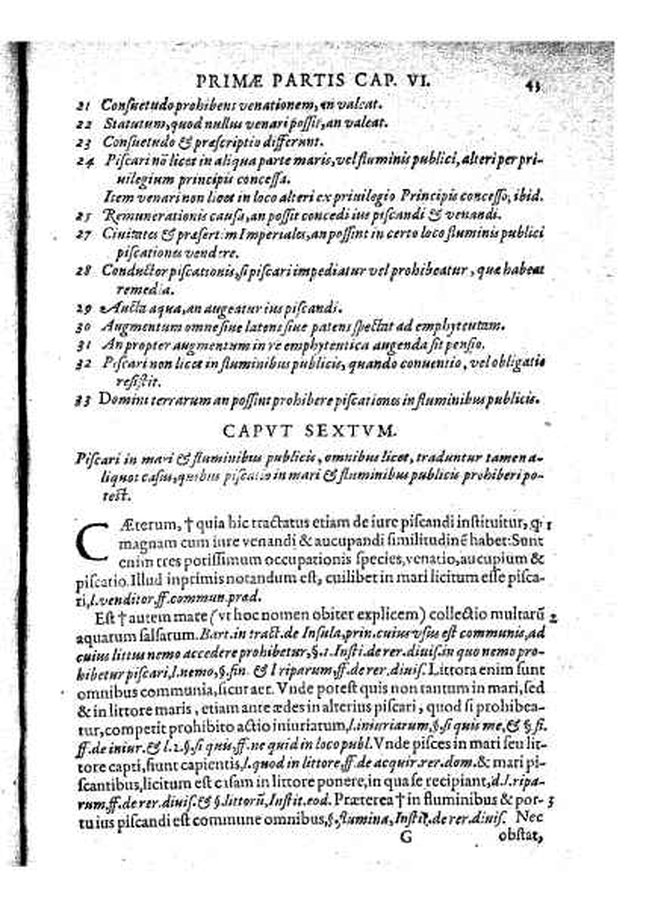 PRIMÆ PARTIS CAP. VI. 43
21 Consuetudo prohibens venationem, an valeat.
22 Statutum, quod nullus venari possit, an valeat.
23 Consuetudo & præscriptio differunt.
24 Piscari nõ licet in aliqua parte maris, vel fluminis publici, alteri per pri-
uilegium principis concessa.
Item venari non licet in loco alteri ex priuilegio Principis concesso, ibid.
25 Remunerationis causa, an possit concedi ius piscandi & venandi.
27 Ciuitates & præsertim Imperiales, an possint in certo loco fluminis publici
piscationes vendere.
28 Conductor piscationis, si piscari impediatur vel prohibeatur, quæ habeat
remedia.
29 Aucta aqua, an augeatur ius piscandi.
30 Augmentum omne siue latens siue patens spectat ad emphyteutam.
31 An propter augmentum in re emphyteutica augenda sit pensio.
32 Piscari non licet in fluminibus publicis, quando conuentio, vel obligatio
resistit.
33 Domini terrarum an possint prohibere piscationes in fluminibus publicis.
CAPVT SEXTVM.
Piscari in mari & fluminibus publicis, omnibus licet, traduntur tamen a-
liquot casus, quibus piscatio in mari & fluminibus publicis prohiberi po-
test.
CÆterum, † quia hic tractatus etiam de iure piscandi instituitur, q; 1
magnam cum iure venandi & aucupandi similitudinẽ habet: Sunt
enim tres potissimum occupationis species, venatio, aucupium &
piscatio. Illud inprimis notandum est, cuilibet in mari licitum esse pisca-
ri, l. venditor, ff. commun. præd.
Est † autem mare (vt hoc nomen obiter explicem) collectio multarũ 2
aquarum salsarum. Bart. in tract. de Insula, prin. cuius vsus est communis, ad
cuius littus nemo accedere prohibetur, §. 1. Insti. de rer. diuis. in quo nemo pro-
hibetur piscari, l. nemo, §. fin. & l riparum, ff. de rer. diuis. Littora enim sunt
omnibus communia, sicut aer. Vnde potest quis non tantum in mari, sed
& in littore maris, etiam ante ædes in alterius piscari, quod si prohibea-
tur, competit prohibito actio iniuriatum, l. iniuriarum, §. si quis me, & §. fi.
ff. de iniur. & l. 2. §. si quis, ff. ne quid in loco publ. Vnde pisces in mari seu lit-
tore capti, fiunt capientis, l. quod in littore, ff. de acquir. rer. dom. & mari pi-
scantibus, licitum est casam in littore ponere, in qua se recipiant, d. l. ripa-
rum, ff. de rer. diuis. & §. littorũ, Instit. eod. Præterea † in fluminibus & por- 3
tu ius piscandi est commune omnibus, §. flumina, Instit. de rer. diuis. Nec
G obstat,